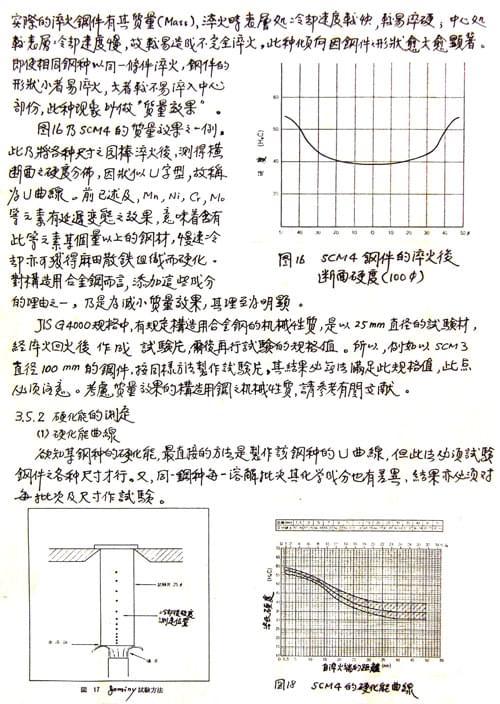 實際的淬火鋼件有其質量(Mass), 淬火時表層処冷却速度較快, 較易淬硬; 中心処
較表層冷却速度慢, 故較易造成不完全淬火。此种傾向因鋼件形狀愈大愈顯著。
即使相同鋼种以同一條件淬火, 鋼件的
形狀小者易淬火, 大者較不易淬入中心
部份, 此种现象叫做"質量效果"。
圖16乃SCM4的質量效果之一例。
此乃將各种尺寸之圓棒淬火後, 測得橫
断面之硬度分佈, 因狀似U字型, 故稱
為U曲線。前已述及, Mn, Ni, Cr, Mo
等元素有延遲变態之效果, 意味着含有
此等元素某個量以上的鋼材, 慢速冷
却亦可獲得麻田散鉄组織而硬化。
對構造用合金鋼而言, 添加這些成分
的理由之一, 乃是為减小質量效果, 其理至为明顯。
硬度 (HRC)
60
50
40
30
50 40 30 20 10 0 10 20 30 40 50
圖16 SCM4鋼件的淬火後
断面硬度(100φ)
JIS G4000规格中, 有规定構造用合金钢的机械性質, 是以25mm直径的試験材,
経淬火回火後 作成 試験片, 爾後再行試験的规格值。所以, 例如以SCM3
直径100mm的鋼件, 按同様方法製作試験片, 其结果必无法滿足此规格值, 此点
必须注意。考慮質量效果的構造用鋼之机械性質, 請参考有関文献。
3.5.2 硬化能的測定
(1) 硬化能曲線
欲知某鋼种的硬化能, 最直接的方法是製作該鋼种的U曲線, 但此法必须試験
鋼件之各种尺寸才行。又, 同一鋼种每一溶解批次其化学成分也有差異, 結果亦必须对
每批次及尺寸作試験。
試験片 25φ
圖 17 Jominy 試験方法
(HRC)
自淬火端的距離 (mm)
圖18 SCM4的硬化能曲線